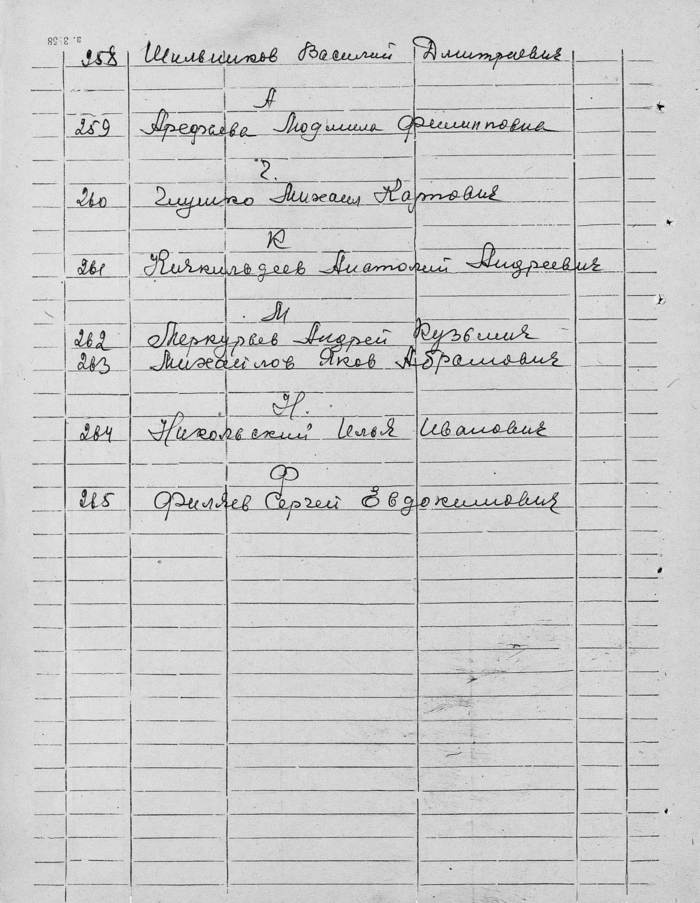 258 Шильников Василий Дмитриевич
А
259 Арефьева Людмила Филипповна
Г.
260 Глушко Михаил Карпович
К
261 Кичкильдеев Анатолий Андреевич
М
262 Меркурьев Андрей Кузьмич
263 Михайлов Яков Абрамович
Н.
264 Никольский Илья Иванович
Ф
265 Филяев Сергей Евдокимович